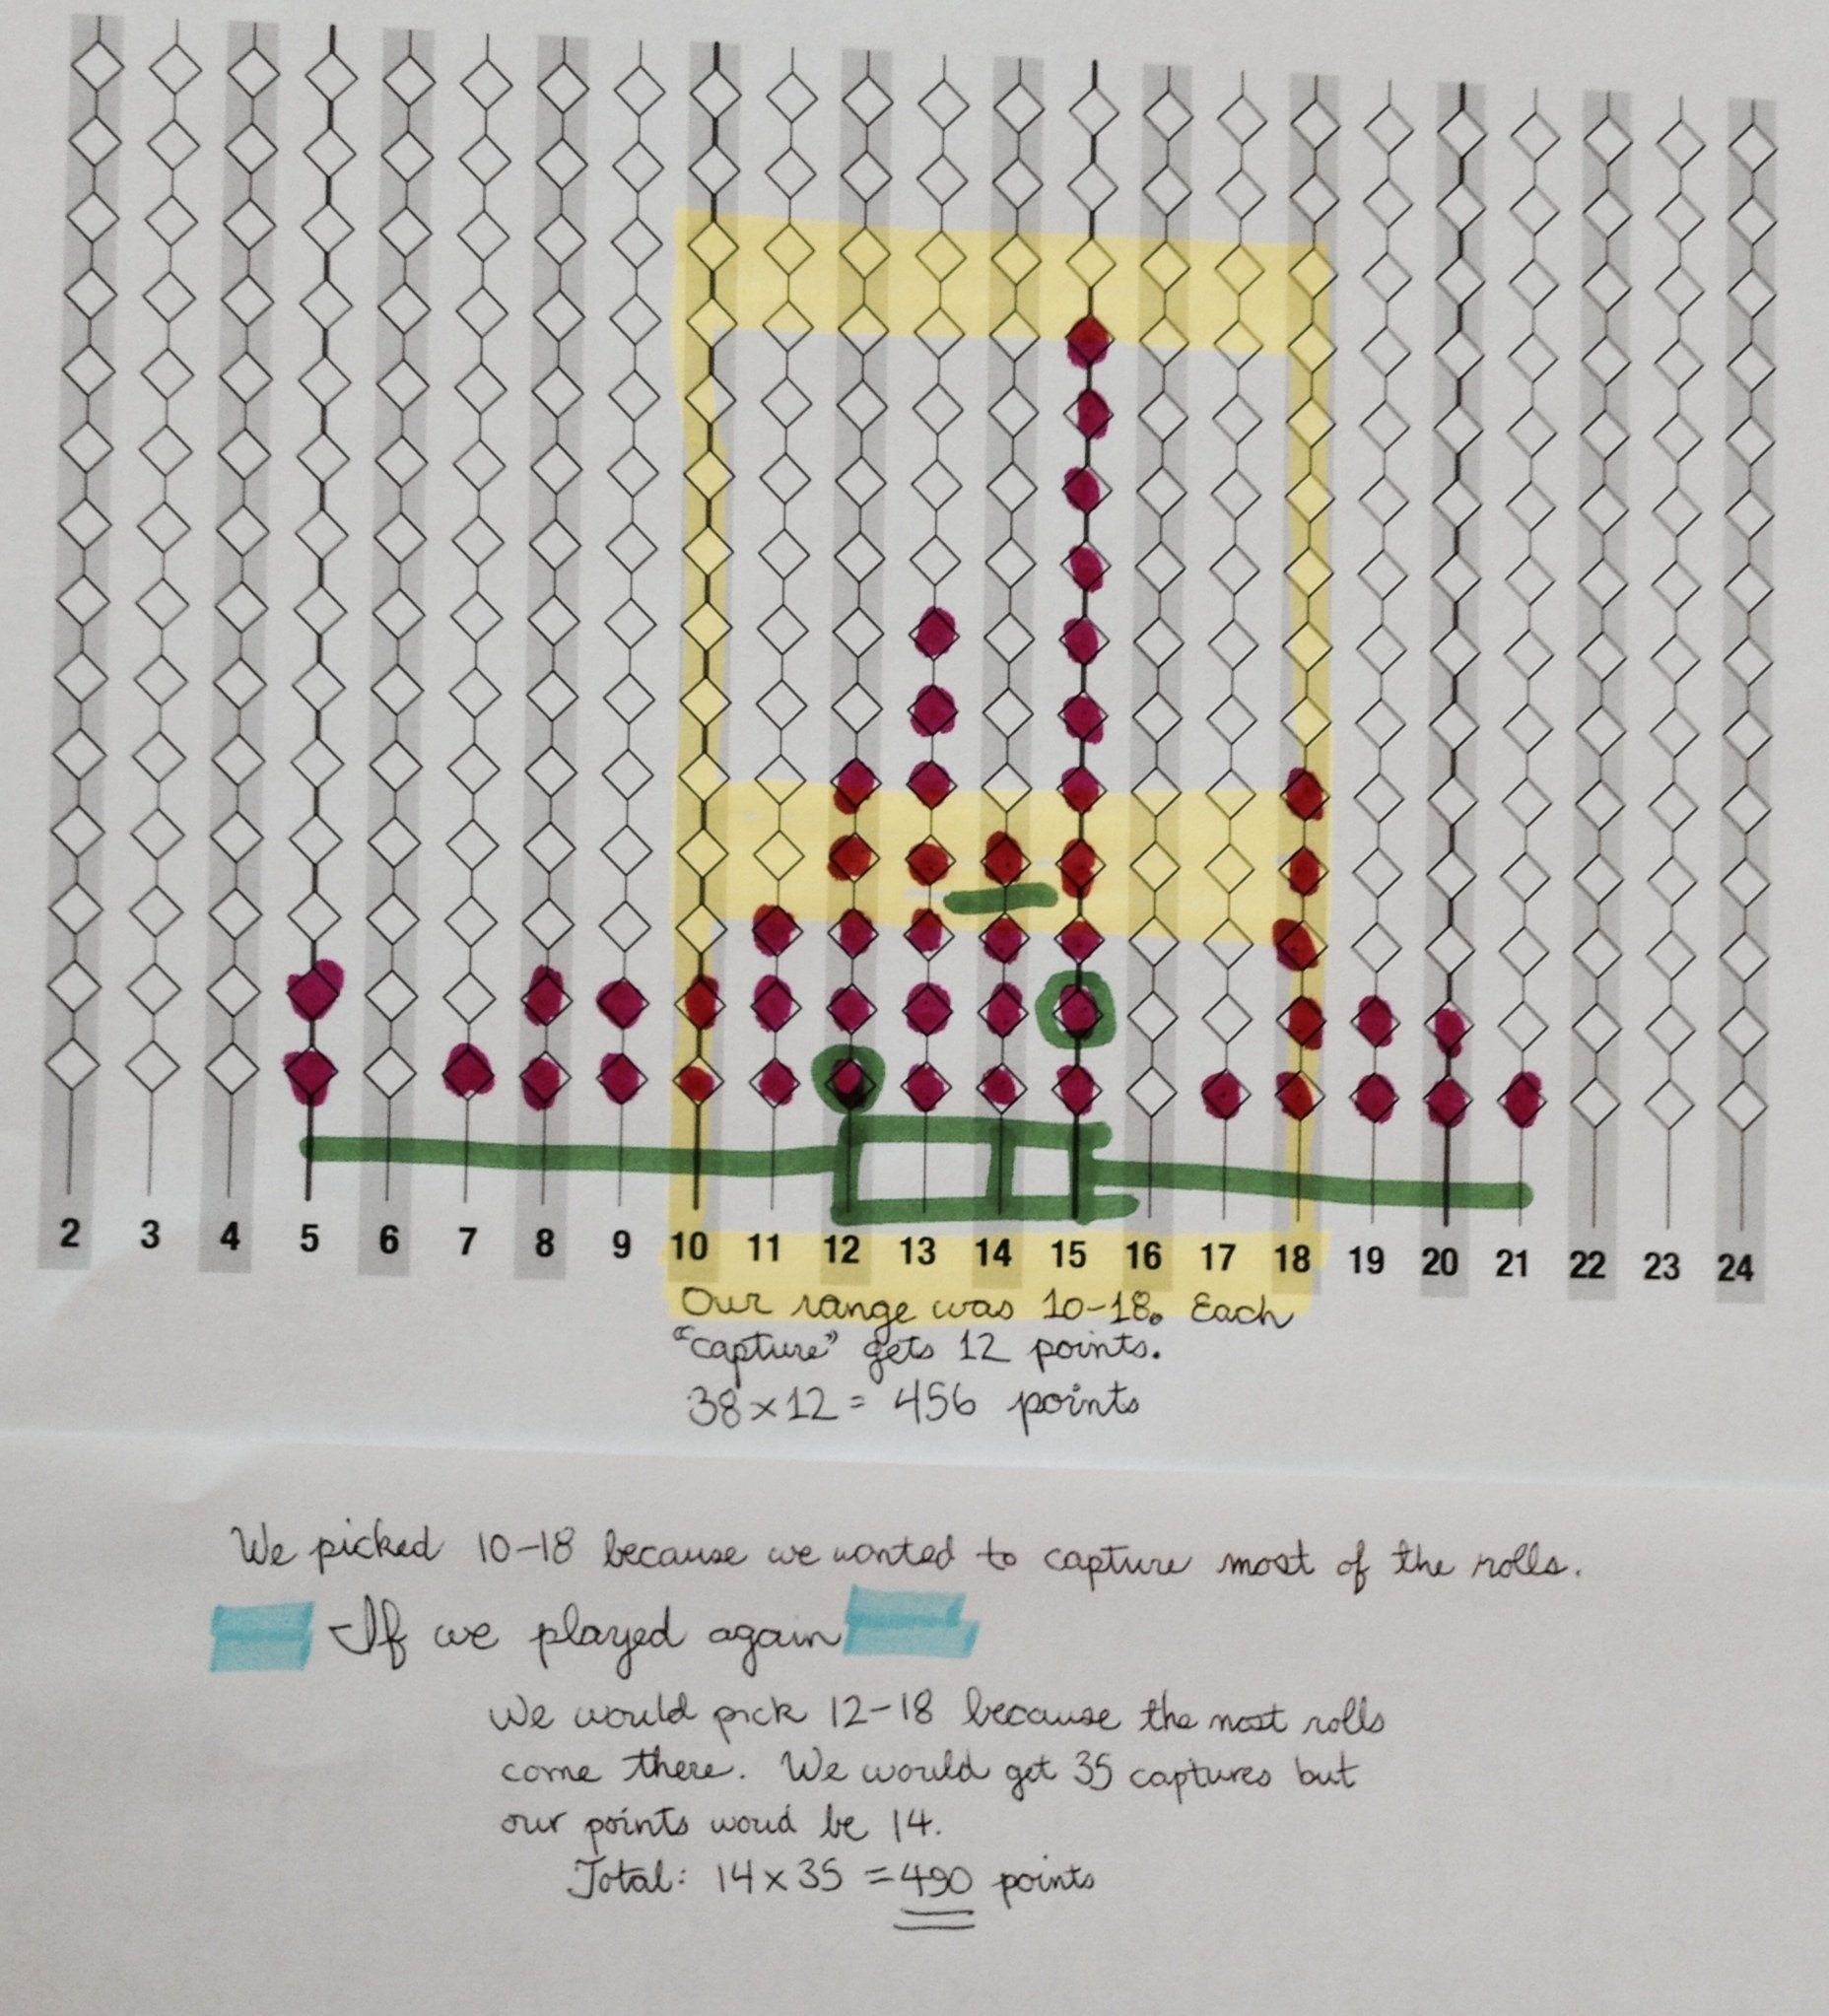 2 3 4 5 6 7 8 9 10 11 12 13 14 15 16 17 18 19 20 21 22 23 24
Our range was 10-18. Each
"capture" gets 12 points.
38 x 12 = 456 points
We picked 10-18 because we wanted to capture most of the rolls.
-If we played again
We would pick 12-18 because the most rolls
come there. We would get 35 captures but
our points woud be 14.
Total: 14 x 35 = 490 points